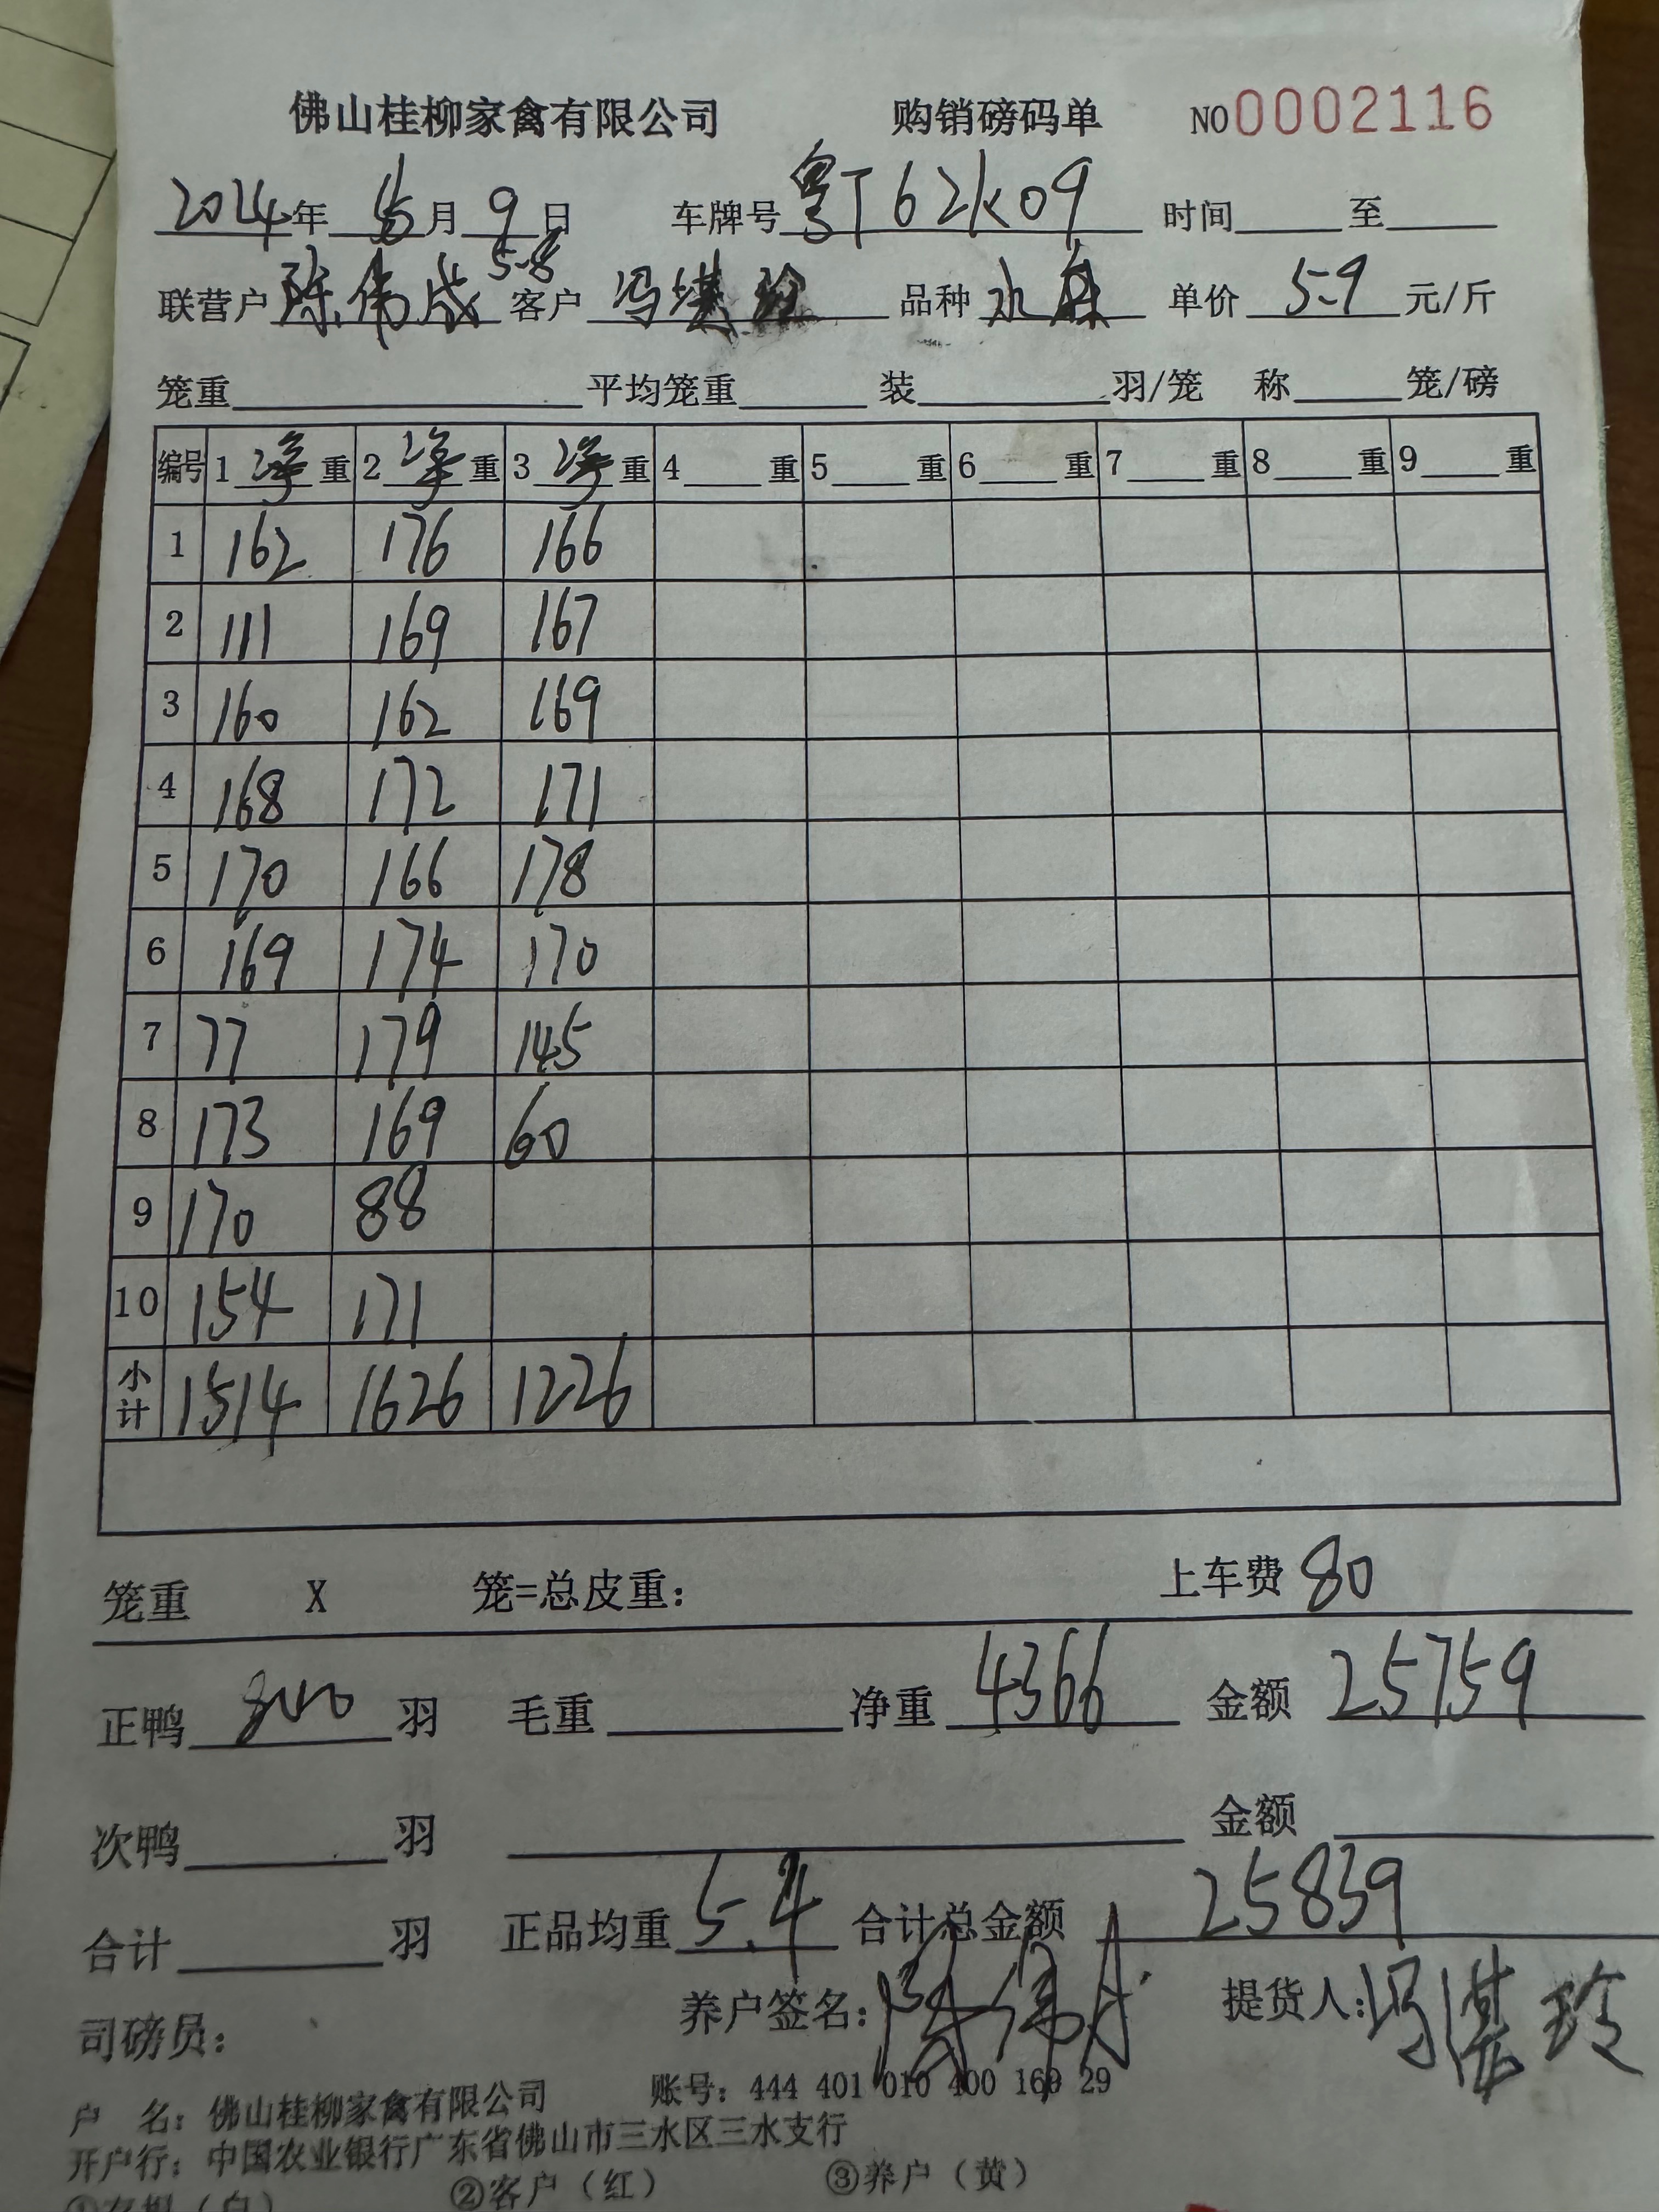 佛山桂柳家禽有限公司 购销磅码单 NO 0002116
2024年 月 9日 车牌号 粤T62K09 时间 至
联营户 陈伟成 5-8 客户 冯堪玲 品种 水麻 单价 5.9 元/斤
笼重 平均笼重 装 羽/笼 称 笼/磅
编号 1 净 重 2 净 重 3 净 重 4 重 5 重 6 重 7 重 8 重 9 重
1 162 176 166
2 111 169 167
3 160 162 169
4 168 172 171
5 170 166 178
6 169 174 170
7 77 179 145
8 173 169 60
9 170 88
10 154 171
小计 1514 1626 1226
笼重 X 笼=总皮重: 上车费 80
正鸭 800 羽 毛重 净重 4366 金额 25759
次鸭 羽 金额
合计 羽 正品均重 5.4 合计总金额 25839
司磅员: 养户签名: 陈伟成 提货人: 冯堪玲
户 名: 佛山桂柳家禽有限公司 账号: 444 401 010 400 169 29
开户行: 中国农业银行广东省佛山市三水区三水支行
②客户(红) ③养户(黄)